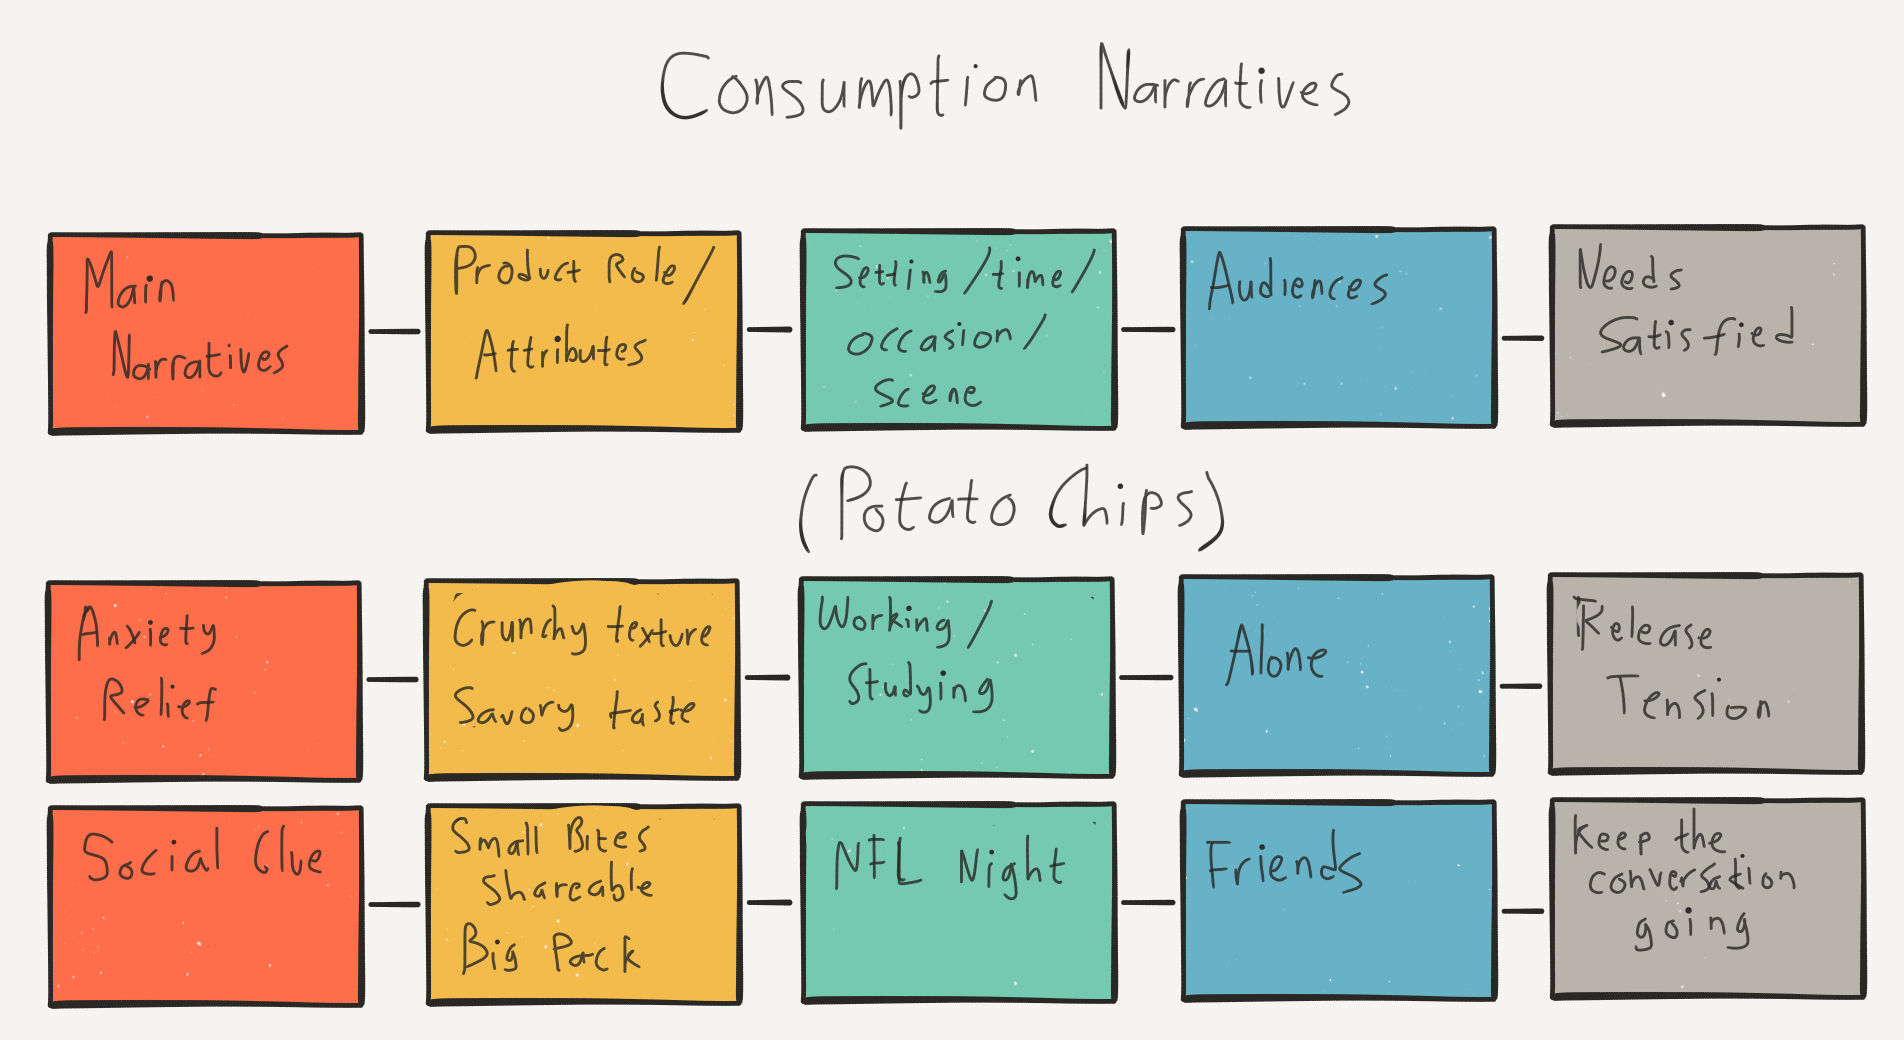 Consumption Narratives
Main
Narratives
Product Role/
Attributes
Setting/time/
occasion/
scene
Audiences
Needs
Satisfied
(Potato Chips)
Anxiety
Relief
Crunchy texture
Savory taste
Working/
Studying
Alone
Release
Tension
Social Clue
Small Bites
Shareable
Big Pack
NFL Night
Friends
Keep the
conversation
going